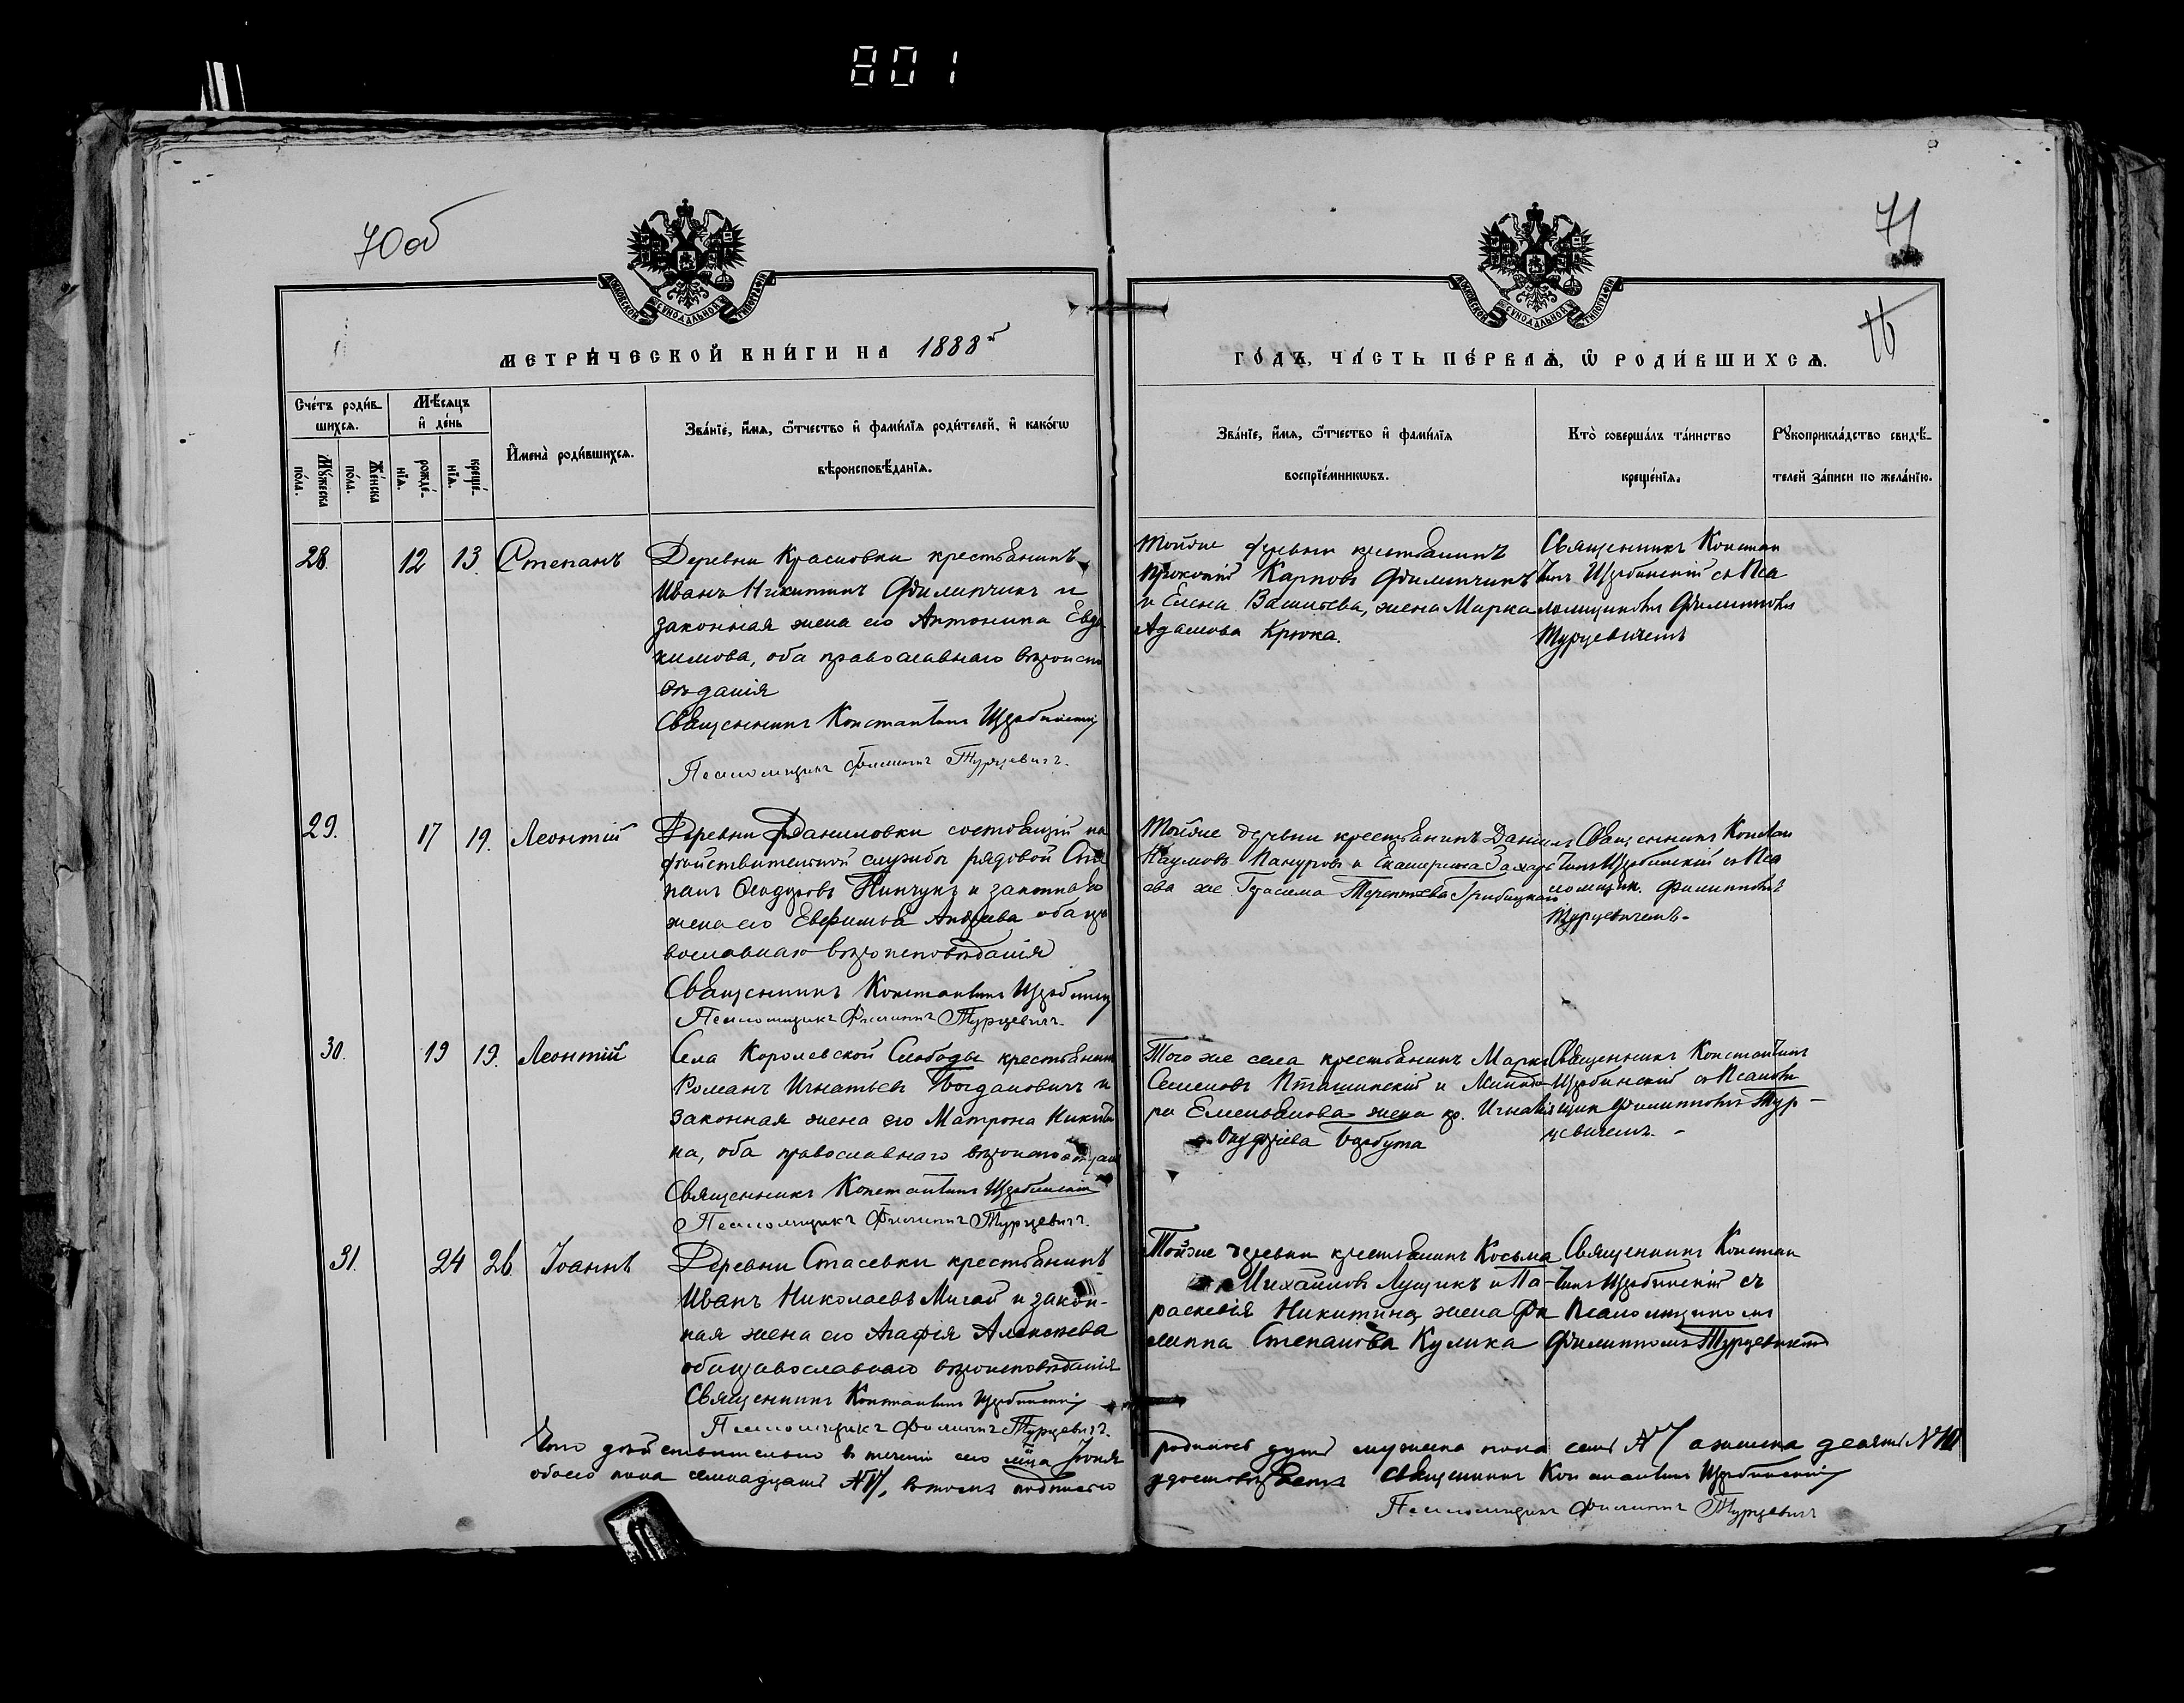 801
70 об
71
МОСКОВСКОЙ СѴНОДАЛЬНОЙ ТИПОГРАФІИ
МОСКОВСКОЙ СѴНОДАЛЬНОЙ ТИПОГРАФІИ
МЕТРИ́ЧЕСКОЙ КНИ́ГИ НА 1888й
ГО́ДЪ, ЧА́СТЬ ПЕ́РВАѦ, Ѽ РОДИ́ВШИХСѦ.
Сче́тъ роди́в-
шихсѧ.
Мѣ́сѧцъ
и҆ де́нь
Мꙋ́жеска
по́ла.
Же́нска
по́ла.
рожде́-
нїѧ.
креще́-
нїѧ.
И҆мена̀ роди́вшихсѧ.
Зва́нїе, и҆́мѧ, ѻ҆́тчество и҆ фами́лїѧ роди́телей, и҆ како́гѡ
вѣроисповѣ́данїѧ.
Зва́нїе, и҆́мѧ, ѻ҆́тчество и҆ фами́лїѧ
воспрїе́мникѡвъ.
Кто̀ соверша́лъ та́инство
креще́нїѧ.
Рꙋкоприкла́дство свидѣ́-
телей за́писи по жела́нїю.
28. 12 13. Степанъ
Деревни Красновки крестьянинъ
Иванъ Никитинъ Филипчикъ и
законная жена его Антонина Евдо
кимова, оба православнаго вѣроиспо
вѣданія
Священникъ Константинъ Щербинскій
Псаломщикъ Филиппъ Турцевичъ.
Тойже деревни крестьянинъ
Прокопій Карповъ Филипчикъ
и Елена Васильева, жена Марка
Адамова Крюка.
Священникъ Констан
тинъ Щербинскій съ Пса
ломщикомъ Филиппомъ
Турцевичемъ
29. 17 19. Леонтій
Деревни Даниловки состоящій на
дѣйствительной службѣ рядовой Сте
панъ Ѳеодоровъ Нинчукъ и законная
жена его Евфимія Андреева оба пра
вославнаго вѣроисповѣданія
Священникъ Константинъ Щербинскій
Псаломщикъ Филиппъ Турцевичъ.
Тойже деревни крестьянинъ Даніилъ
Наумовъ и Екатерина Захарье
ва же Герасима Терентьева Грибицкаго
Священникъ Констан
тинъ Щербинскій съ Пса
ломщик. Филиппомъ
Турцевичемъ.
30. 19 19. Леонтій
Села Королевской Слободы крестьянинъ
Романъ Игнатьевъ Богдановичъ и
законная жена его Матрона Никити
на, оба православнаго вѣроисповѣдан
Священникъ Константинъ Щербинскій
Псаломщикъ Филиппъ Турцевичъ.
Того же села крестьянинъ Маркъ
Семеновъ Пташинскій и
ра Емельянова жена кр. Игнатія
Онуфріева Барбута
Священникъ Константинъ
Щербинскій съ Псалом
щик Филиппомъ Тур-
цевичемъ. -
31. 24 26 Іоаннъ
Деревни Стасевки крестьянинъ
Иванъ Николаевъ Мигай и закон-
ная жена его Агафія Алексѣева
оба православнаго вѣроисповѣданія
Священникъ Константинъ Щербинскій
Псаломщикъ Филиппъ Турцевичъ.
Тойже деревни крестьянинъ Косьма
Михайловъ Лущикъ и Па-
раскевія Никитина жена Фи
липпа Степанова Кулика
Священникъ Констан
тинъ Щербинскій съ
Псаломщикомъ
Филиппомъ Турцевичемъ
Что дѣйствительно въ теченіи сего м-ца Іюня
родилось душъ мужеска пола семь №7 а женска десять №10
обоего пола семнадцать №17, въ томъ подписью
удостовѣряемъ Священникъ Константинъ Щербинскій
Псаломщикъ Филиппъ Турцевичъ